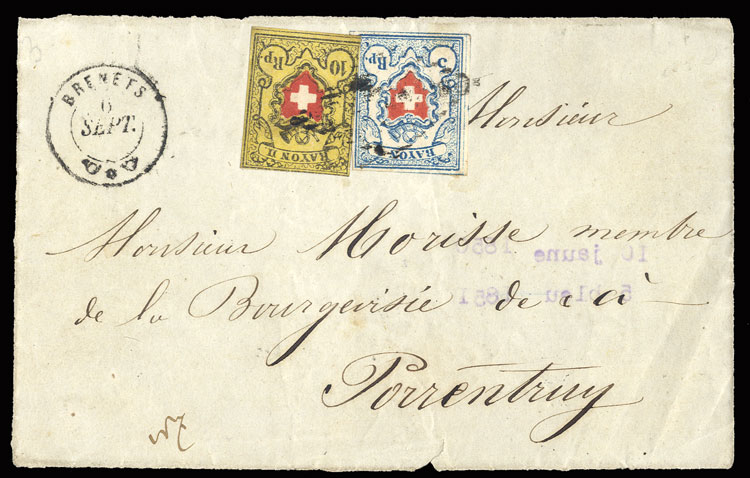 BRENETS
6
SEPT.
10 Rp.
RAYON II.
5 Rp.
RAYON I.
Monsieur
Monsieur Morisse membre
de la Bourgeoisie de
à
Porrentruy
10 jaune 1850
5 bleu 1851